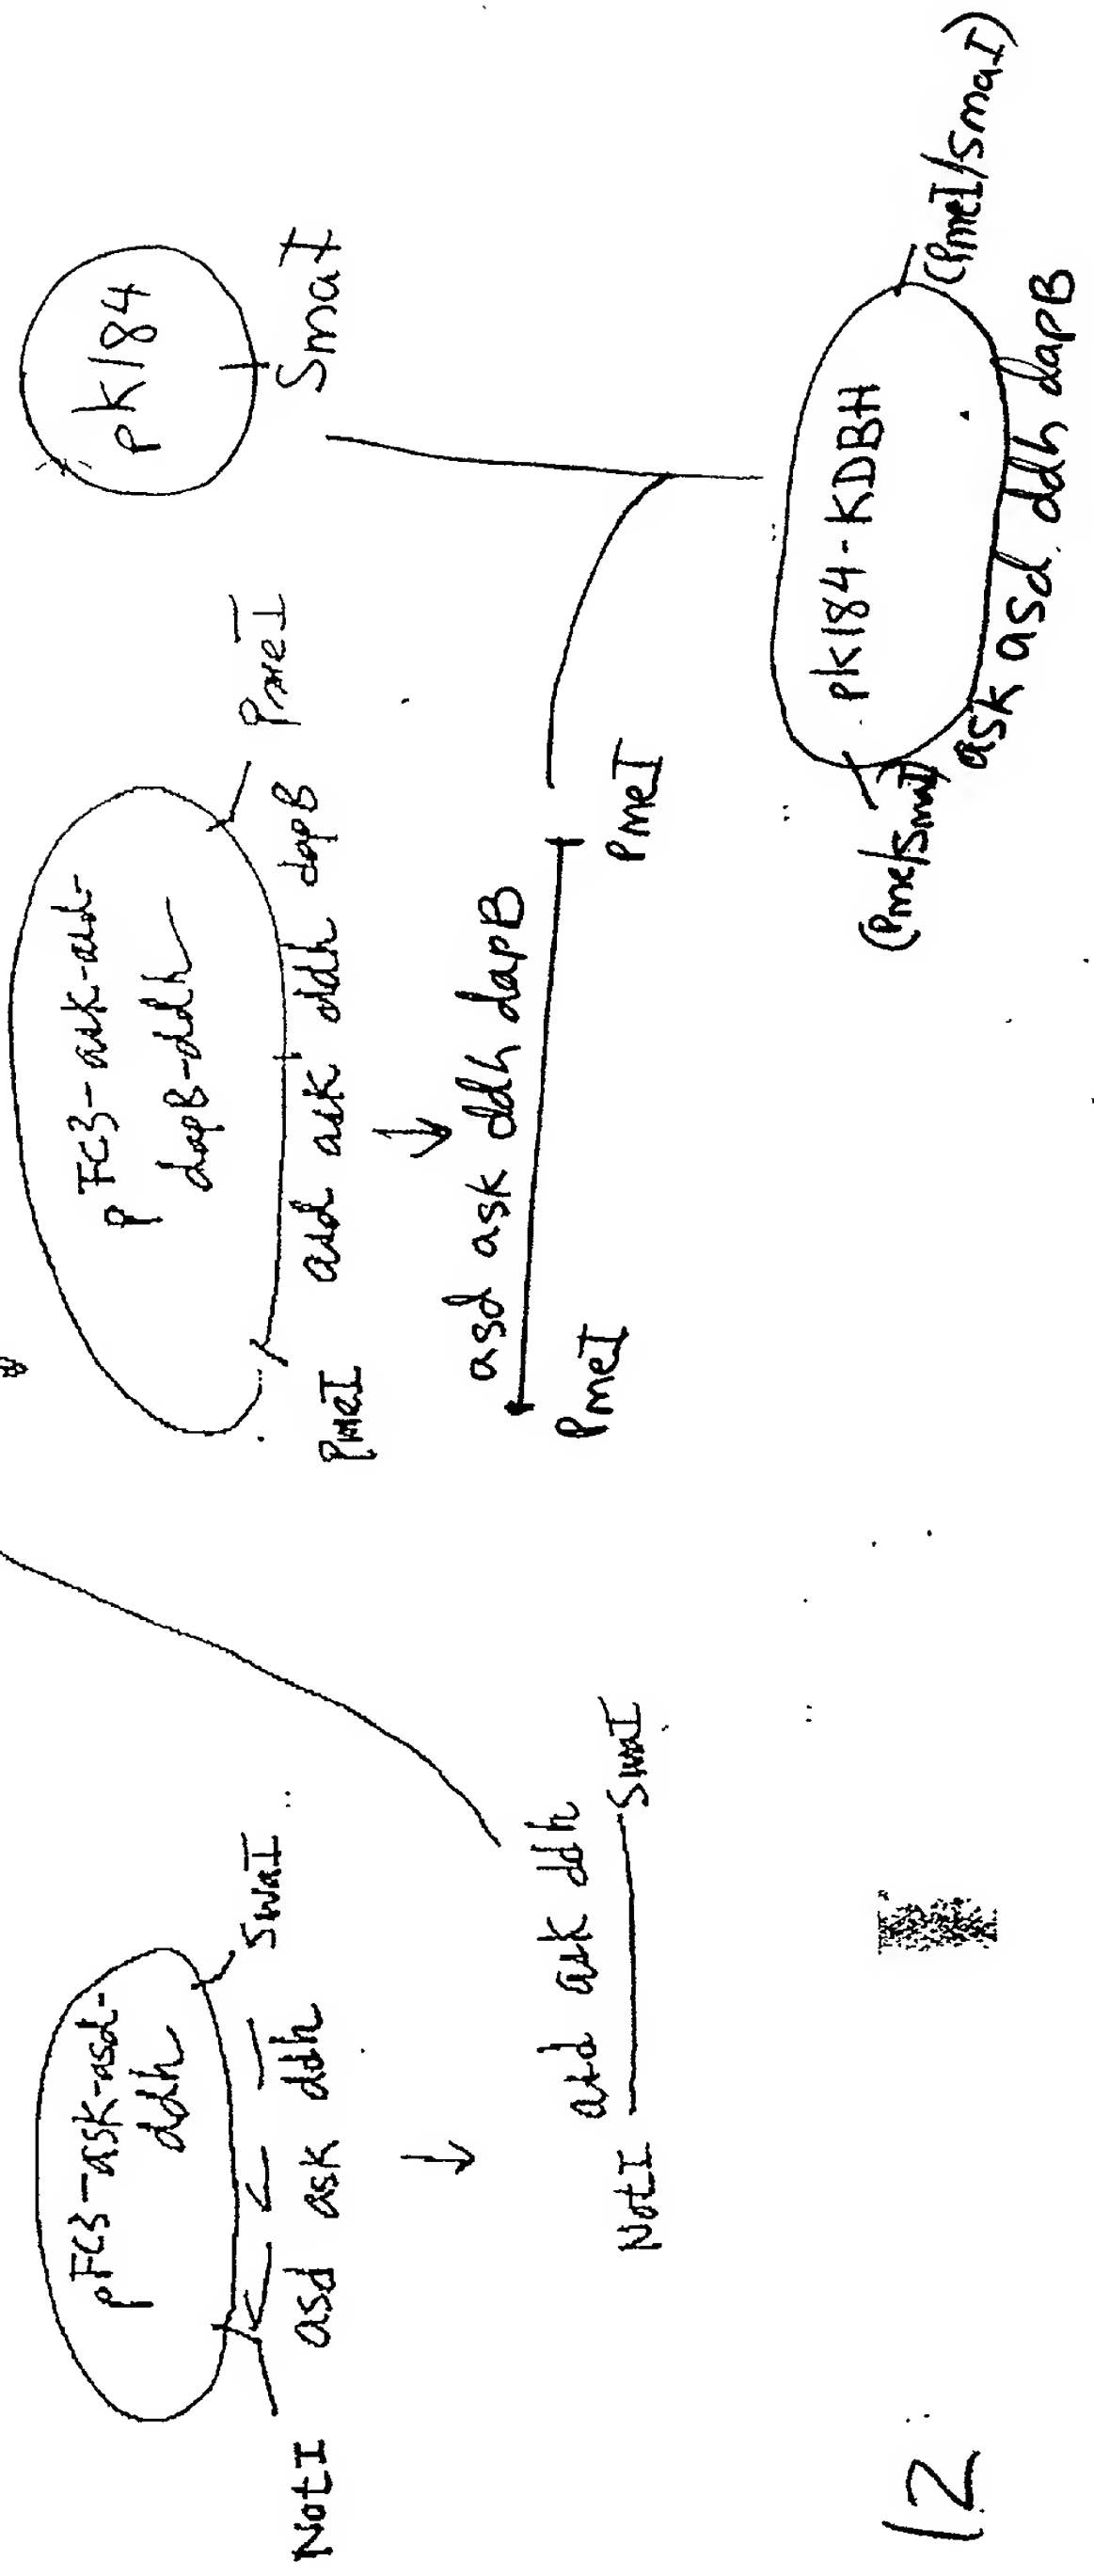 pFC3-ask-asd-
ddh
NotI
SwaI
asd ask ddh
asd ask ddh
NotI
SwaI
pFC3-ask-asd-
dapB-ddh
PmeI
asd ask ddh dapB
PmeI
asd ask ddh dapB
PmeI
PmeI
pK184
SmaI
pK184-KDBH
(Pme/SmaI)
(PmeI/SmaI)
ask asd ddh dapB
12